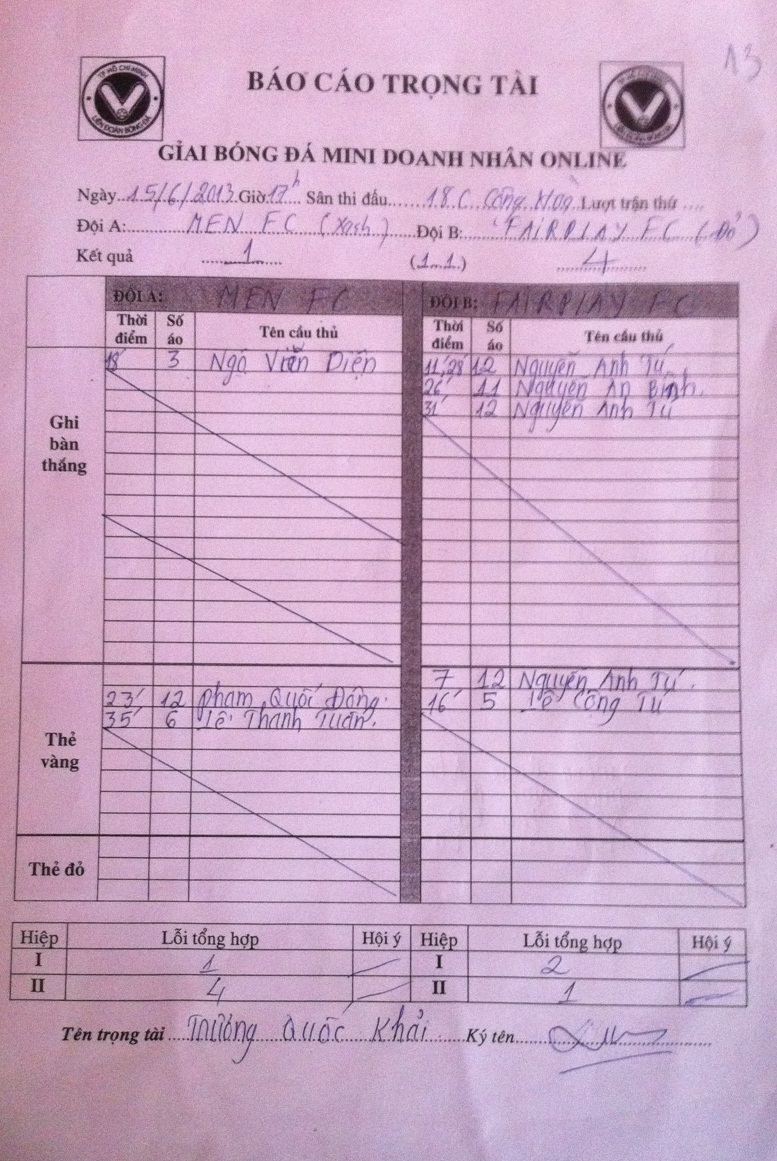 13
TP HỒ CHÍ MINH
LIÊN ĐOÀN BÓNG ĐÁ
BÁO CÁO TRỌNG TÀI
TP HỒ CHÍ MINH
LIÊN ĐOÀN BÓNG ĐÁ
GIẢI BÓNG ĐÁ MINI DOANH NHÂN ONLINE
Ngày 15/6/2013 Giờ 17h Sân thi đấu 18C Cộng Hòa Lượt trận thứ
Đội A: MEN FC (Xanh) Đội B: FAIRPLAY FC (Đỏ)
Kết quả 1 (1-1) 4
ĐỘI A: MEN FC ĐỘI B: FAIRPLAY FC
Thời điểm Số áo Tên cầu thủ Thời điểm Số áo Tên cầu thủ
Ghi bàn thắng
18' 3 Ngô Viễn Diện 11', 28' 12 Nguyễn Anh Tú
26' 11 Nguyễn An Bình.
31' 12 Nguyễn Anh Tú
Thẻ vàng
7 12 Nguyễn Anh Tú.
23' 12 Phạm Quốc Đông. 16' 5 Lê Công Tú
35' 6 Lê Thanh Tuấn.
Thẻ đỏ
Hiệp Lỗi tổng hợp Hội ý Hiệp Lỗi tổng hợp Hội ý
I 1 I 2
II 4 II 1
Tên trọng tài Trương Quốc Khải Ký tên